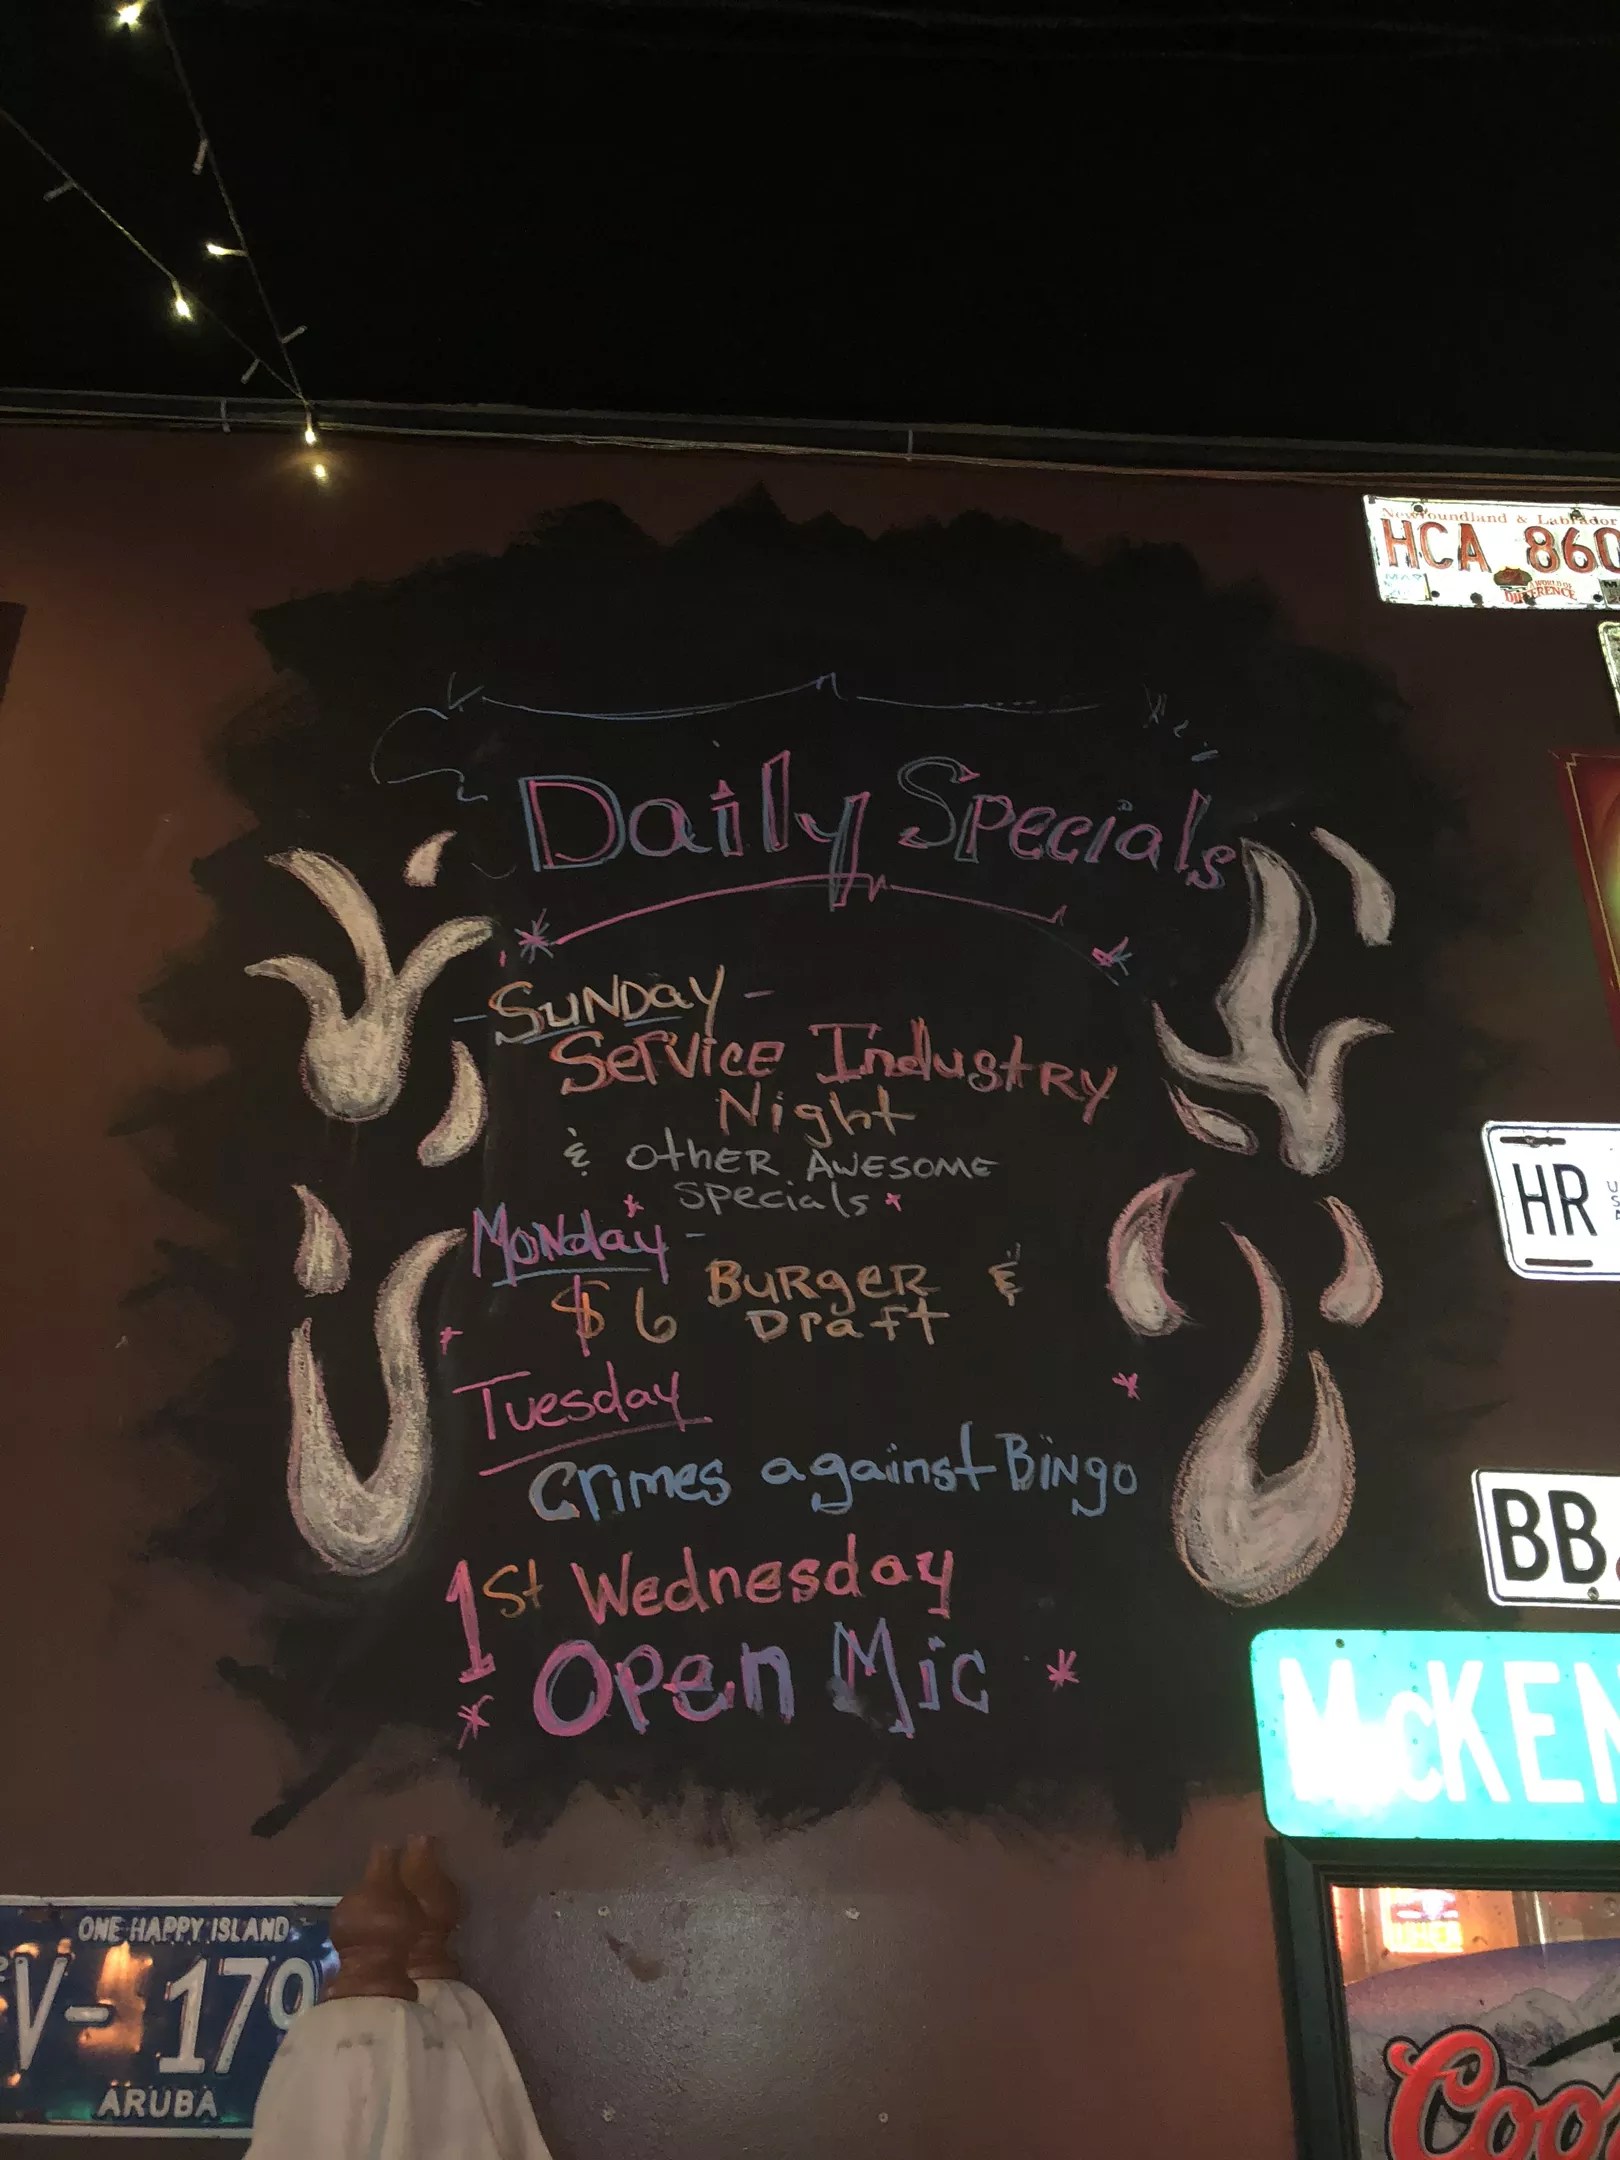 Newfoundland & Labrador
HCA 860
A WORLD OF
DIFFERENCE
Daily Specials
- Sunday -
Service Industry
Night
& other awesome
specials
Monday -
$6 Burger &
Draft
Tuesday
Crimes against Bingo
1st Wednesday
Open Mic
HR
BB
McKEN
ONE HAPPY ISLAND
V- 179
ARUBA
Coo